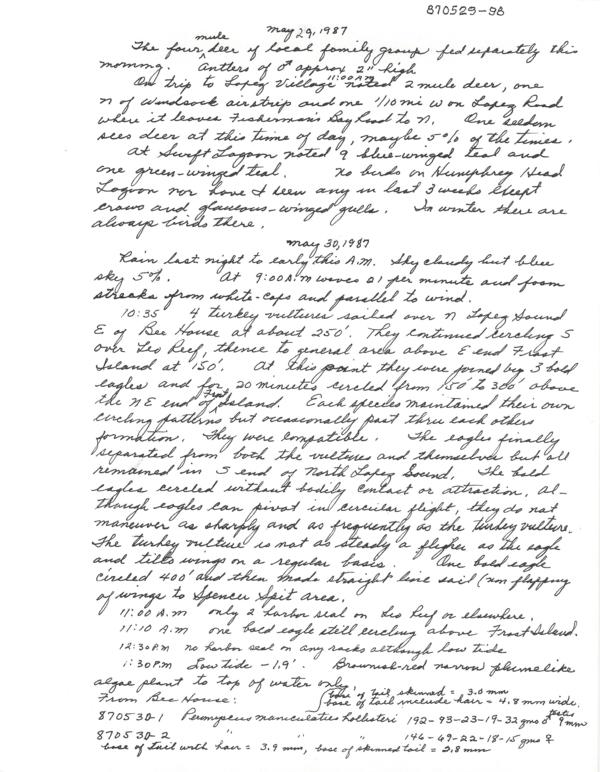 870529-98
May 29, 1987
The four mule deer of local family group fed separately this
morning. Antlers of ♂ approx 2" high
On trip to Lopez Village 11:00 A.M noted 2 mule deer, one
N of windsock airstrip and one 1/10 mi W on Lopez Road
where it leaves Fisherman's Bay Road to N. One seldom
sees deer at this time of day, maybe 5% of the times.
At Swift Lagoon noted 9 blue-winged teal and
one green-winged teal. No birds on Humphrey Head
Lagoon nor have I seen any in last 3 weeks except
crows and glaucous-winged gulls. In winter there are
always birds there.
May 30, 1987
Rain last night to early this A.M. Sky cloudy but blue
sky 5%. At 9:00 A.M waves 21 per minute and foam
streaks from white-caps and parallel to wind.
10:35 4 turkey vultures sailed over N Lopez Sound
E of Bee House at about 250'. They continued circling S
over Leo Reef, thence to general area above E end Frost
Island at 150'. At this point they were joined by 3 bald
eagles and for 20 minutes circled from 150' to 300' above
the NE end of Frost Island. Each species maintained their own
circling patterns but occasionally past thru each others
formation. They were compatible. The eagles finally
separated from both the vultures and themselves but all
remained in S end of North Lopez Sound. The bald
eagles circled without bodily contact or attraction. Al-
though eagles can pivot in circular flight, they do not
maneuver as sharply and as frequently as the turkey vulture.
The turkey vulture is not as steady a flyer as the eagle
and tilts wings on a regular basis. One bald eagle
circled 400' and then made straight line sail (non flapping
of wings to Spencer Spit area.
11:00 A.M only 2 harbor seal on Leo Reef or elsewhere.
11:10 A.M one bald eagle still circling above Frost Island.
12:30 P.M no harbor seal on any rocks although low tide
1:30 P.M Low tide -1.9'. Brownish-red narrow plumelike
algae plant to top of water only.
From Bee House: base of tail skinned = 3.0 mm
base of tail include hair = 4.8 mm wide.
870530-1 Peromyscus maniculatus hollisteri 192-93-23-19-32 gms ♂ testes 9 mm
870530-2 " " 146-69-22-18-15 gms ♀
base of tail with hair = 3.9 mm, base of skinned tail = 2.8 mm